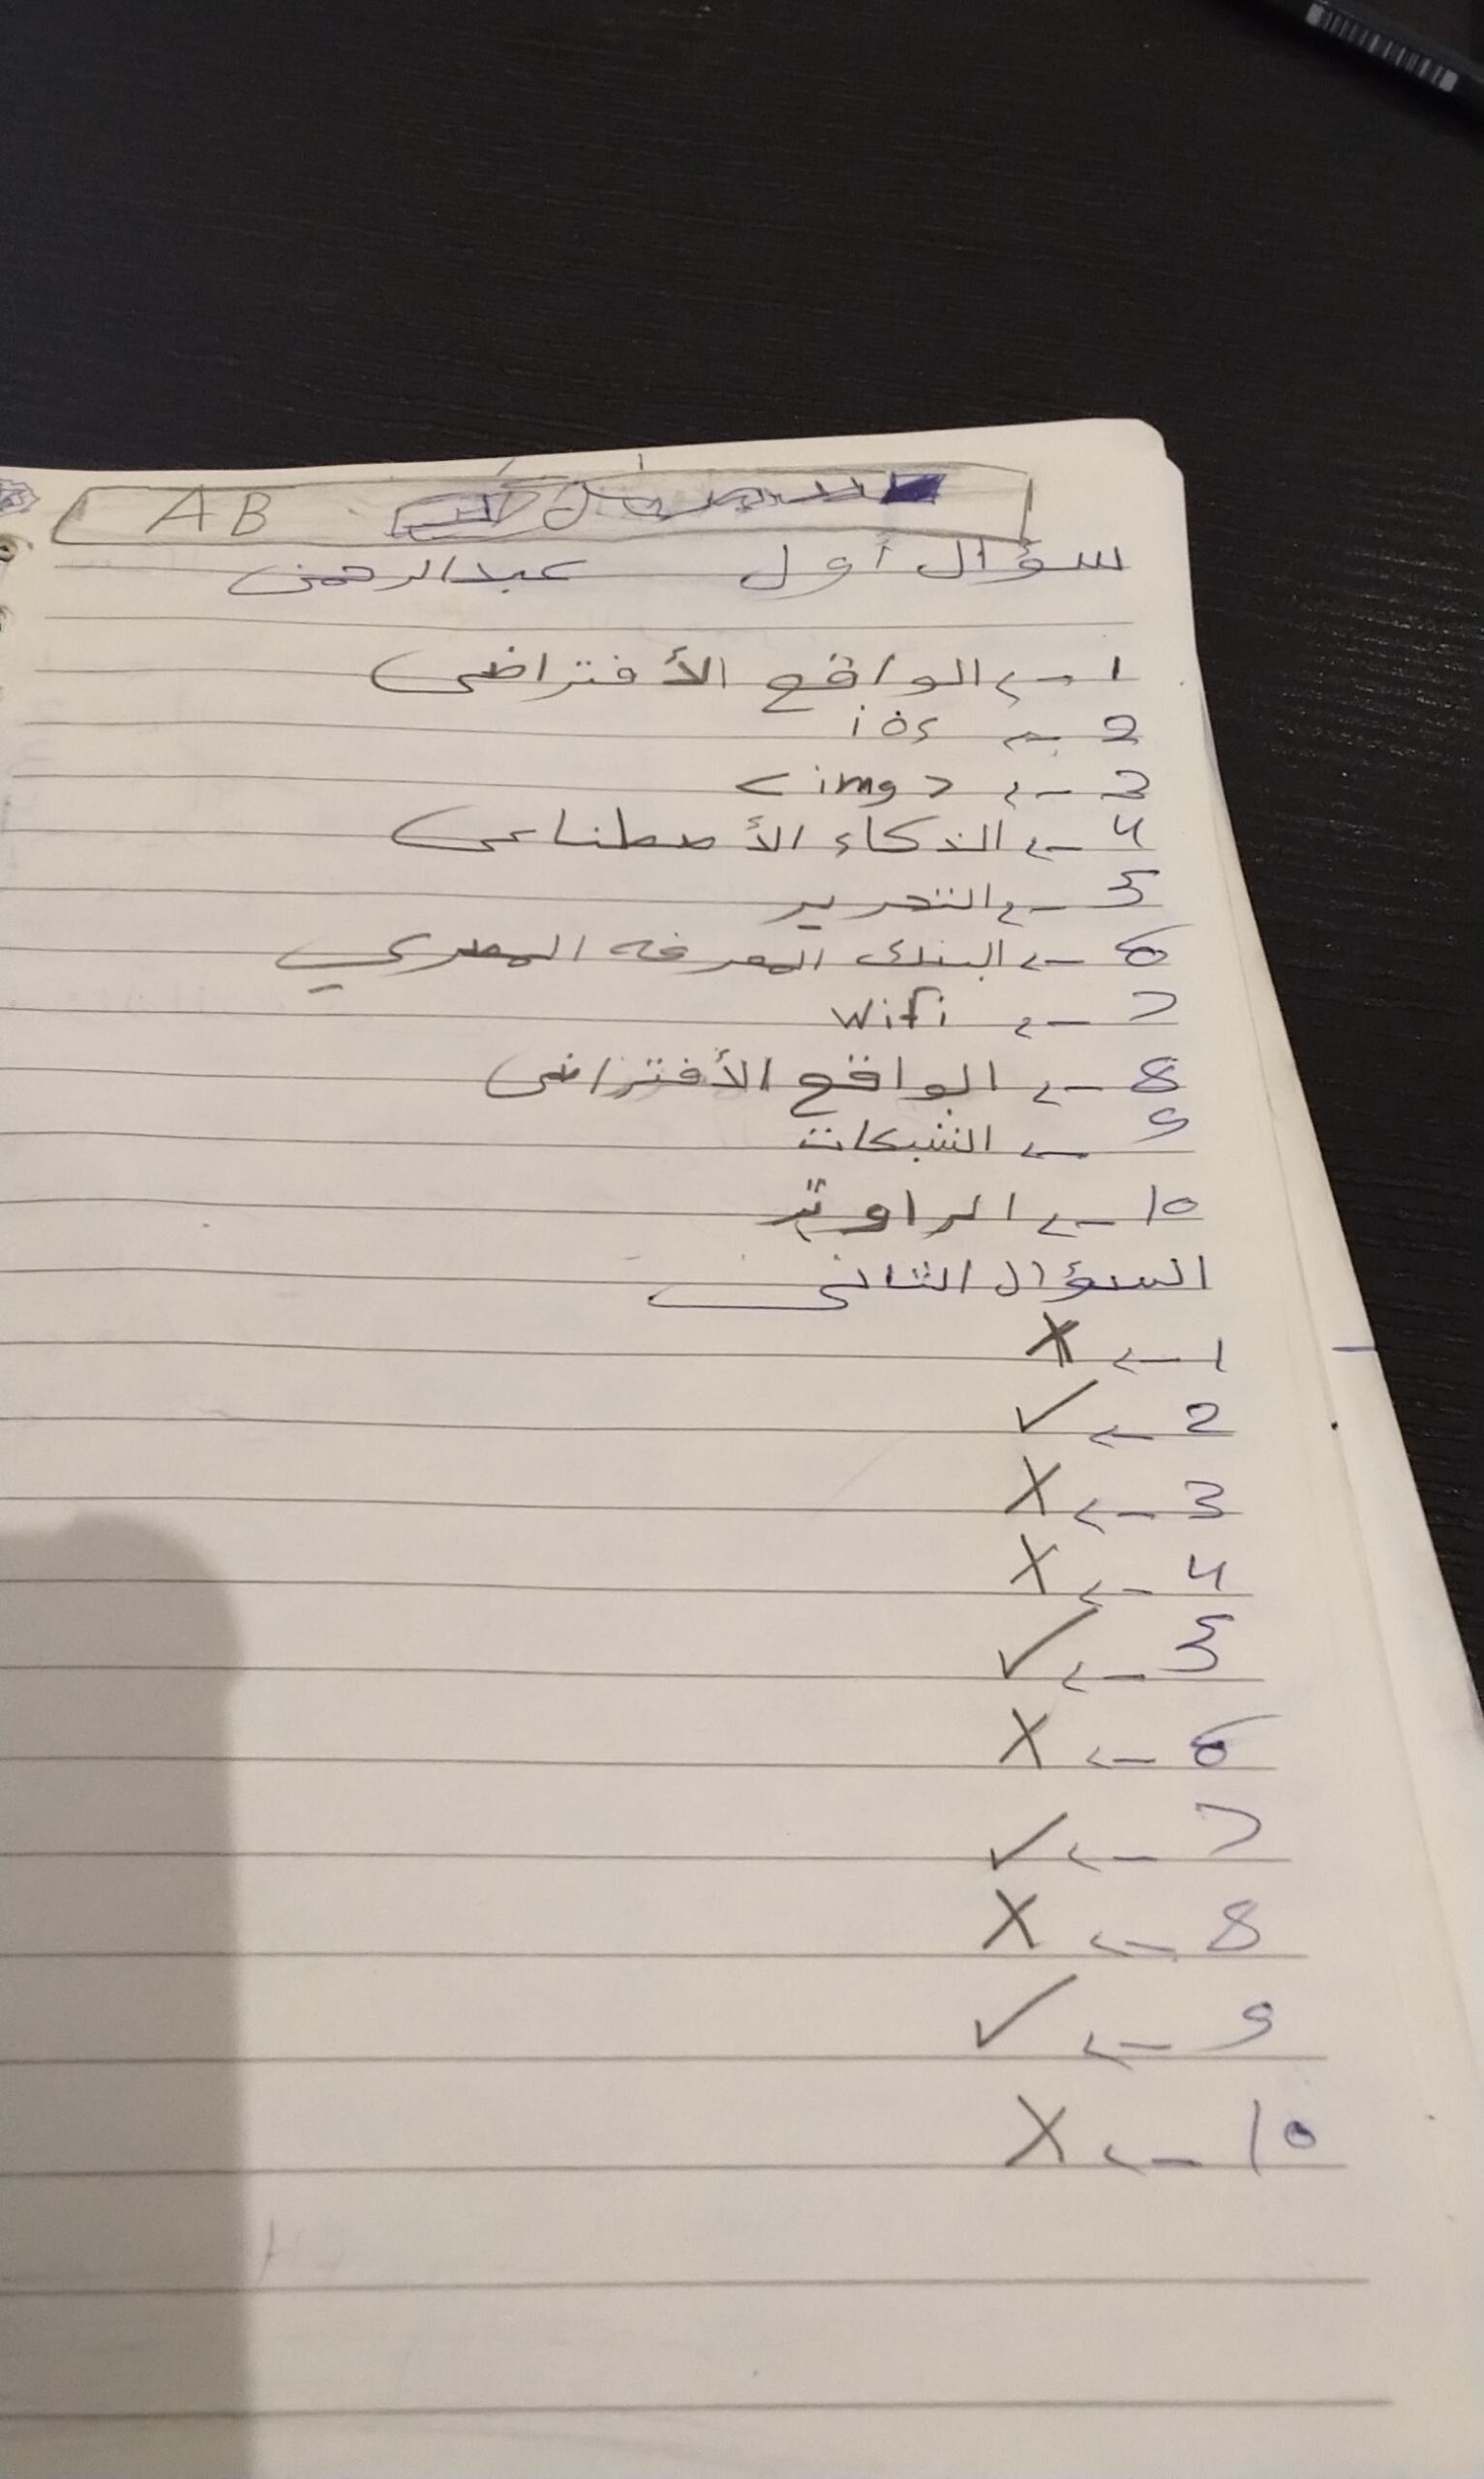 AB
سؤال أول عبدالرحمن
1 ← الواقع الأفتراضى
2 ← ios
3 ← <img>
4 ← الذكاء الأصطناعى
5 ← التحرير
6 ← البنك المعرفه المصري
7 ← Wifi
8 ← الواقع الأفتراضى
9 ← الشبكات
10 ← الراوتر
السؤال الثانى
1 ← X
2 ← ✓
3 ← X
4 ← X
5 ← ✓
6 ← X
7 ← ✓
8 ← X
9 ← ✓
10 ← X